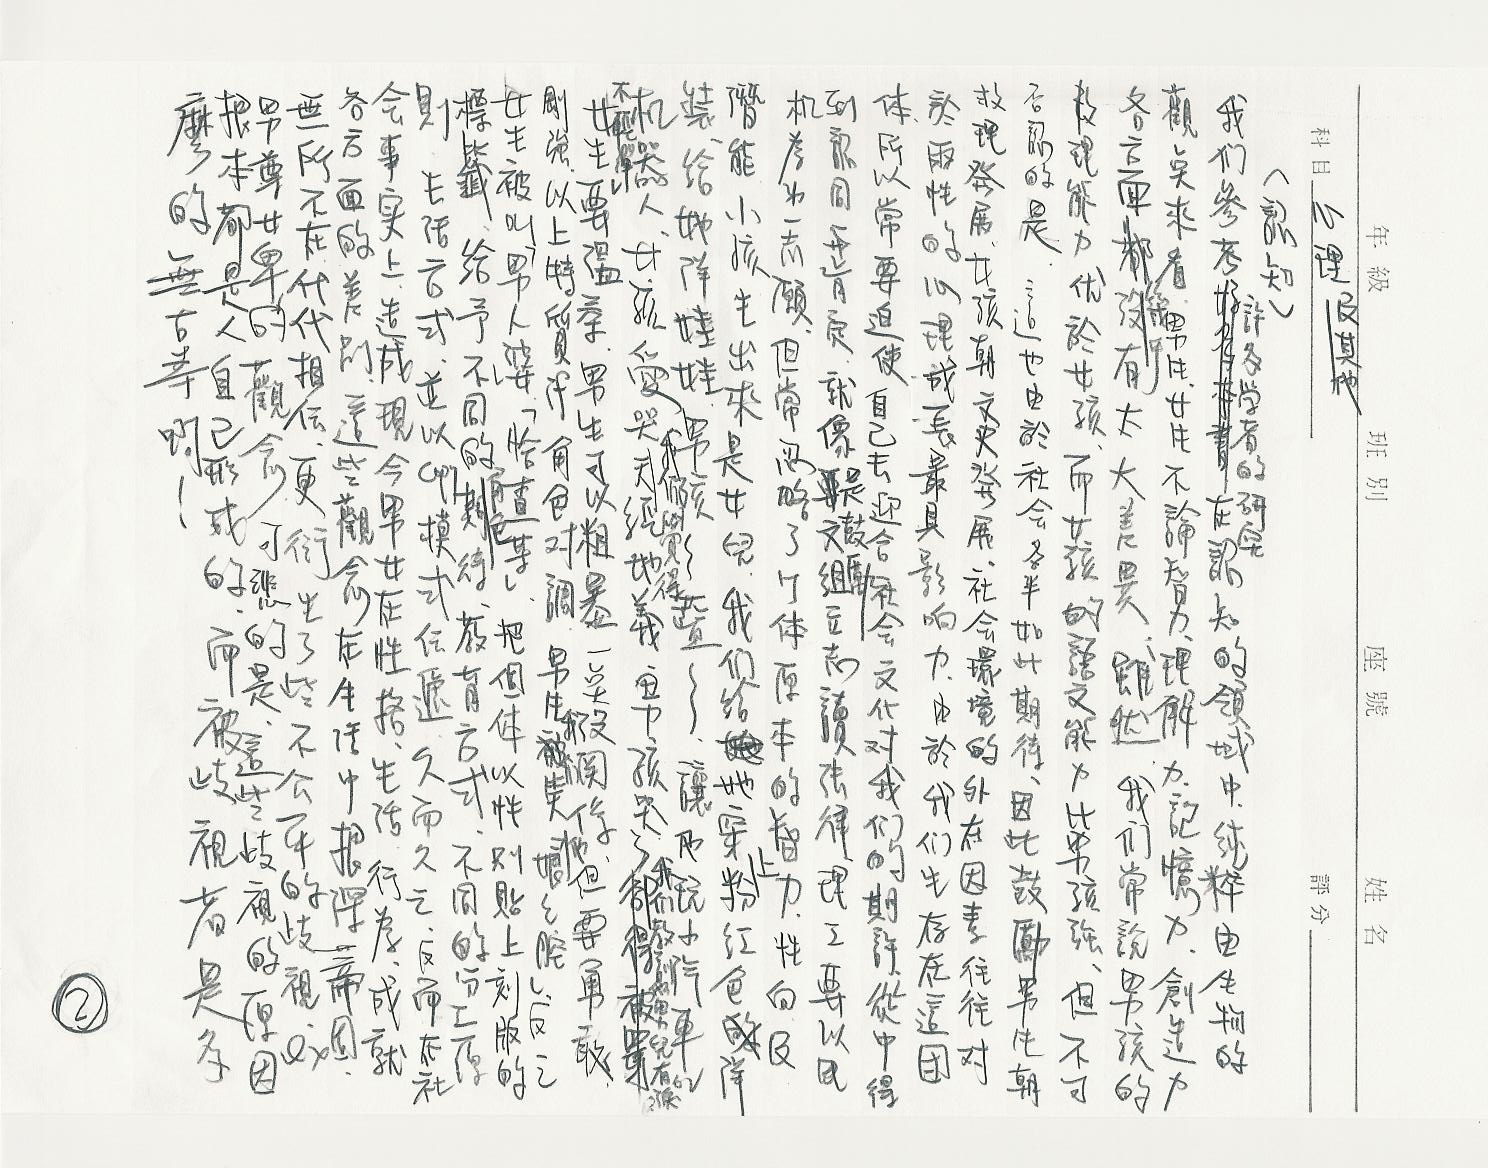 年級 班別 座號 姓名
科目 心理及其他 評分
〈認知〉
我们參考許多学者的研究在認知的領域中,純粹由生物的
觀点來看,男生、女生不論智力、理解力、記憶力、創造力
各方面都沒有太大差異、雖然我们常說男孩的
数理能力优於女孩,而女孩的語文能力比男孩強、但不可
否認的是這也由於社会多半如此期待、因此鼓勵男生朝
数理発展,女孩朝文史発展、社会環境的外在因素往往对
於兩性的心理成長最具影响力,由於我们生存在這团
体所以常要迫使自己去迎合社会文化对我们的期許,從中得
到認同与肯定,就像是鼓勵文組立志讀法律、理工要以民
机為为一志願,但常忽略了个体原本的智力、性向及
潛能,小孩生出來是女兒,我们給她穿上粉紅色的洋
裝、給她洋娃娃,男孩~藍~,讓他玩小汽車、
机器人、女孩愛哭我们覺得天經地義,男孩哭了我们教訓男兒有淚不輕彈,
女生要溫柔,男生可以粗暴一点沒関係,但要勇敢、
剛強,以上特質or角色对調,男生被笑「娘娘腔」,反之
女生被叫「男人婆」,「恰查某」,把個体以性別貼上刻版的
標籤,給予不同的角色期待、教育方式,不同的分工原
則、生活方式,並以imp模式伝遞,久而久之,反而在社
会事实上,造成現今男女在性格、生活、行為、成就
各方面的差別,這些觀念在生活中根深蒂固,
無所不在代代相伝,更衍生了些不公平的歧視,ex
男尊女卑的觀念,可悲的是,這些歧視的原因
根本都是人自己形成的,而被歧視者是多
麼的無古辜啊!
②